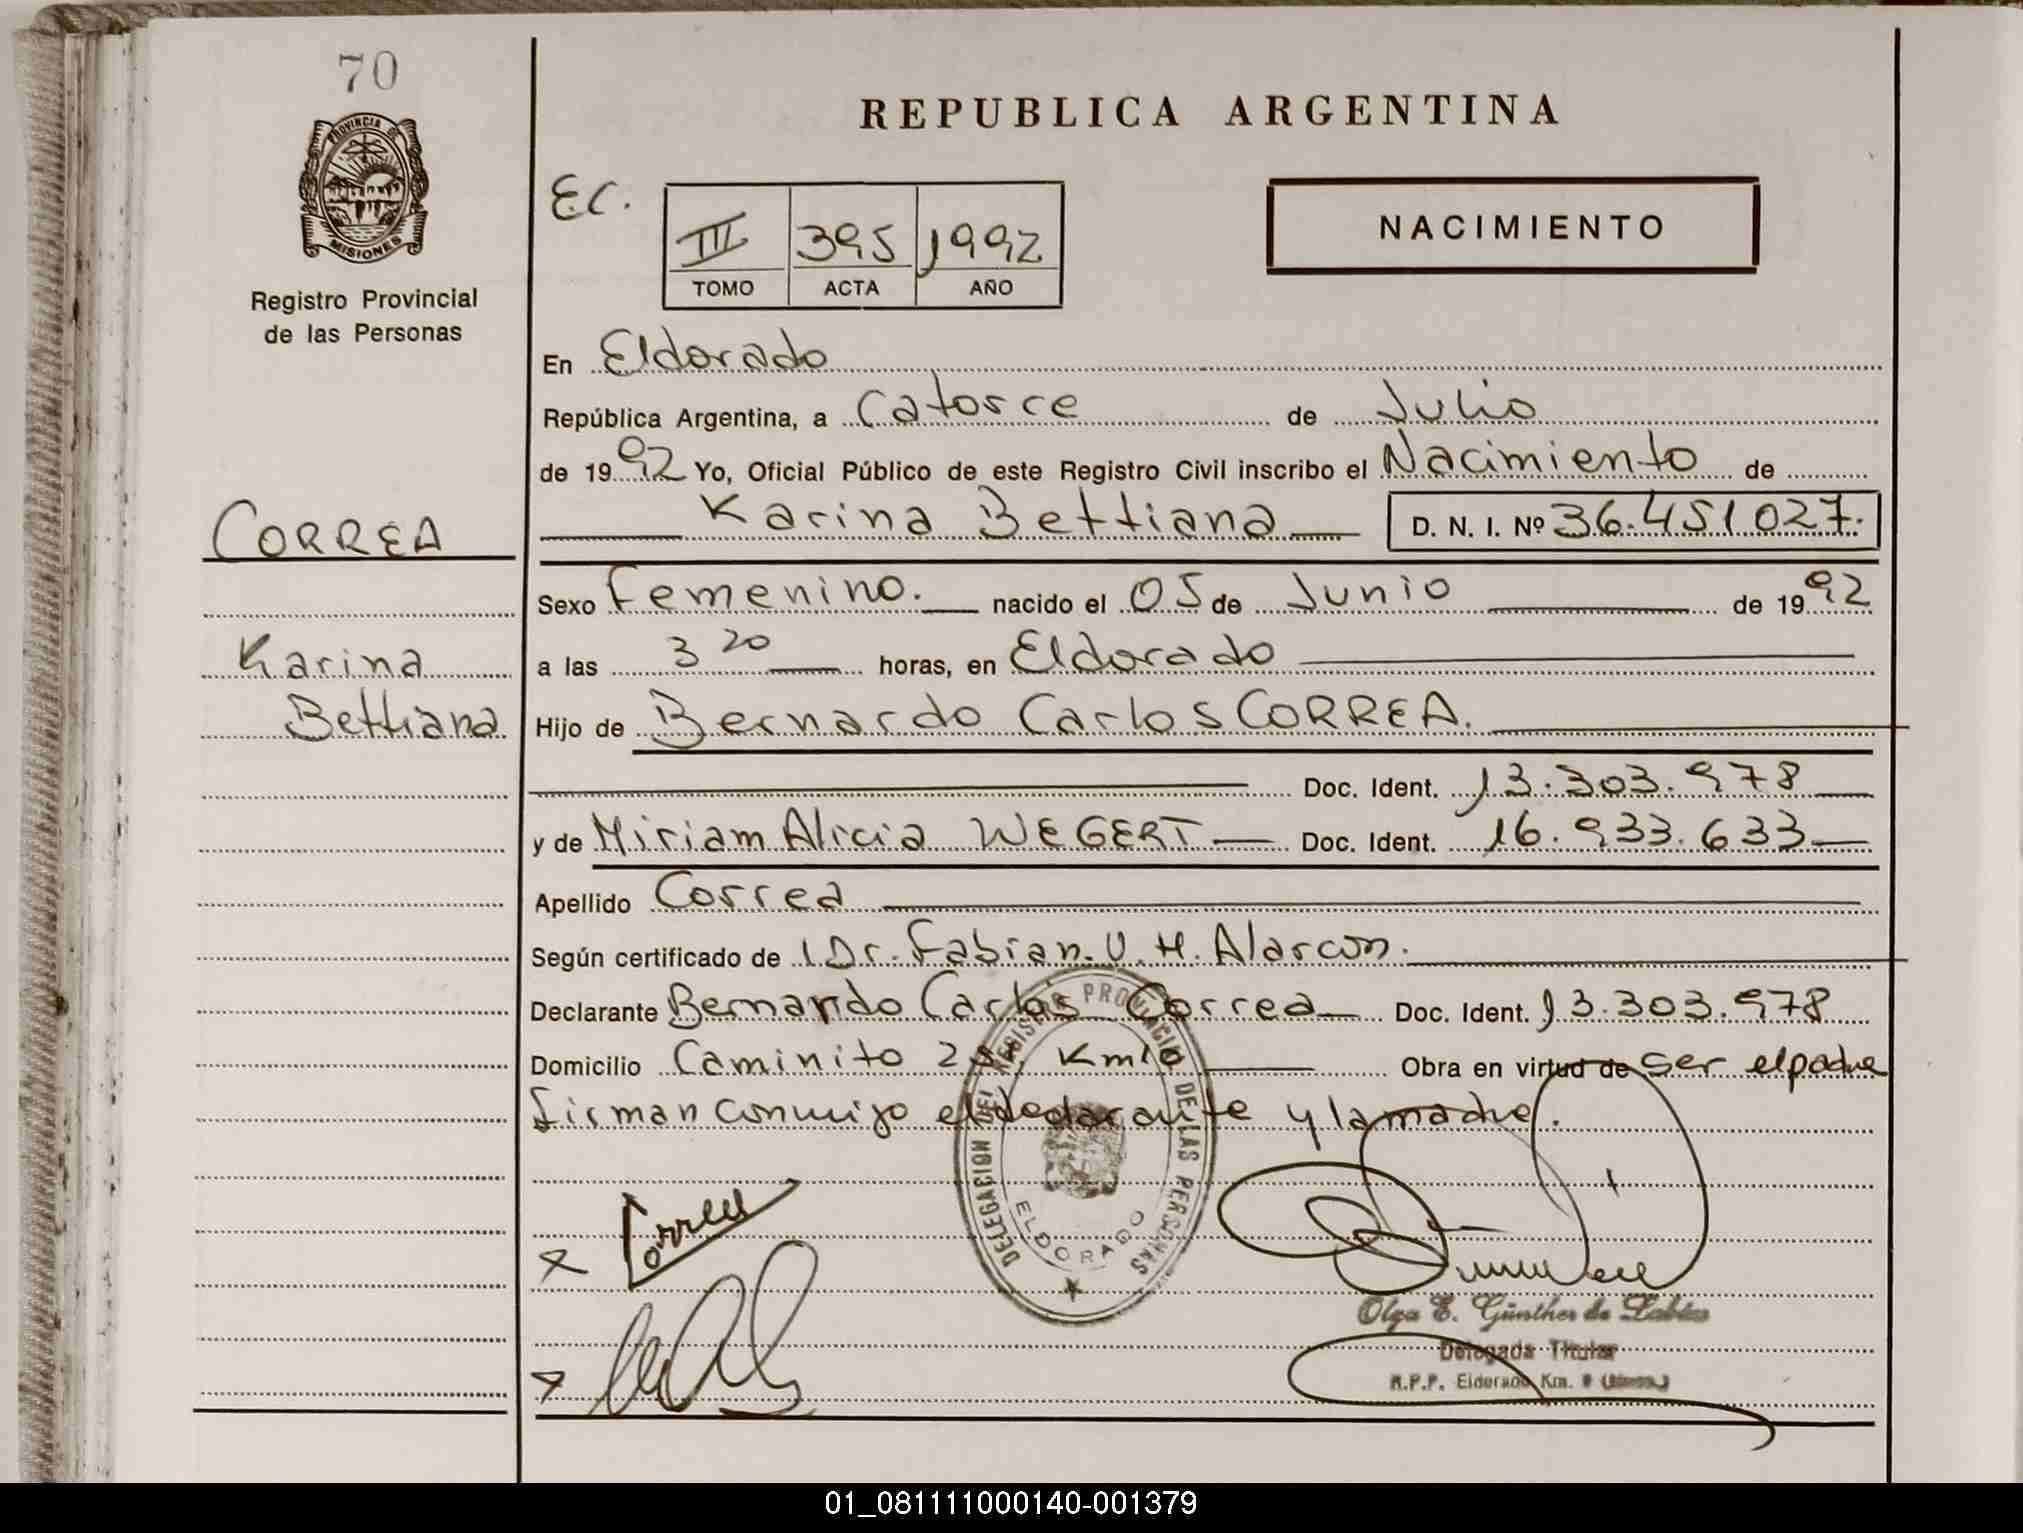 70
PROVINCIA DE
MISIONES
Registro Provincial
de las Personas
REPUBLICA ARGENTINA
EC.
III 395 1992
TOMO ACTA AÑO
NACIMIENTO
En Eldorado
República Argentina, a Catorce de Julio
de 1992 Yo, Oficial Público de este Registro Civil inscribo el Nacimiento de
CORREA
Karina Bettiana D. N. I. Nº 36.451.027.
Sexo Femenino. nacido el 05 de Junio de 1992
Karina
a las 3 20 horas, en Eldorado
Bettiana
Hijo de Bernardo Carlos CORREA.
Doc. Ident. 13.303.978
y de Miriam Alicia WEGERT Doc. Ident. 16.933.633
Apellido Correa
Según certificado de Dr. Fabian. U. H. Alarcon.
Declarante Bernardo Carlos Correa Doc. Ident. 13.303.978
Domicilio Caminito Km 10 Obra en virtud de ser el padre
firman conmigo el declarante y la madre.
DELEGACION DEL REGISTRO PROVINCIAL DE LAS PERSONAS
ELDORADO
Correa
Olga E. Günther de
Delegada Titular
R.P.P. Eldorado Km. 9
01_081111000140-001379